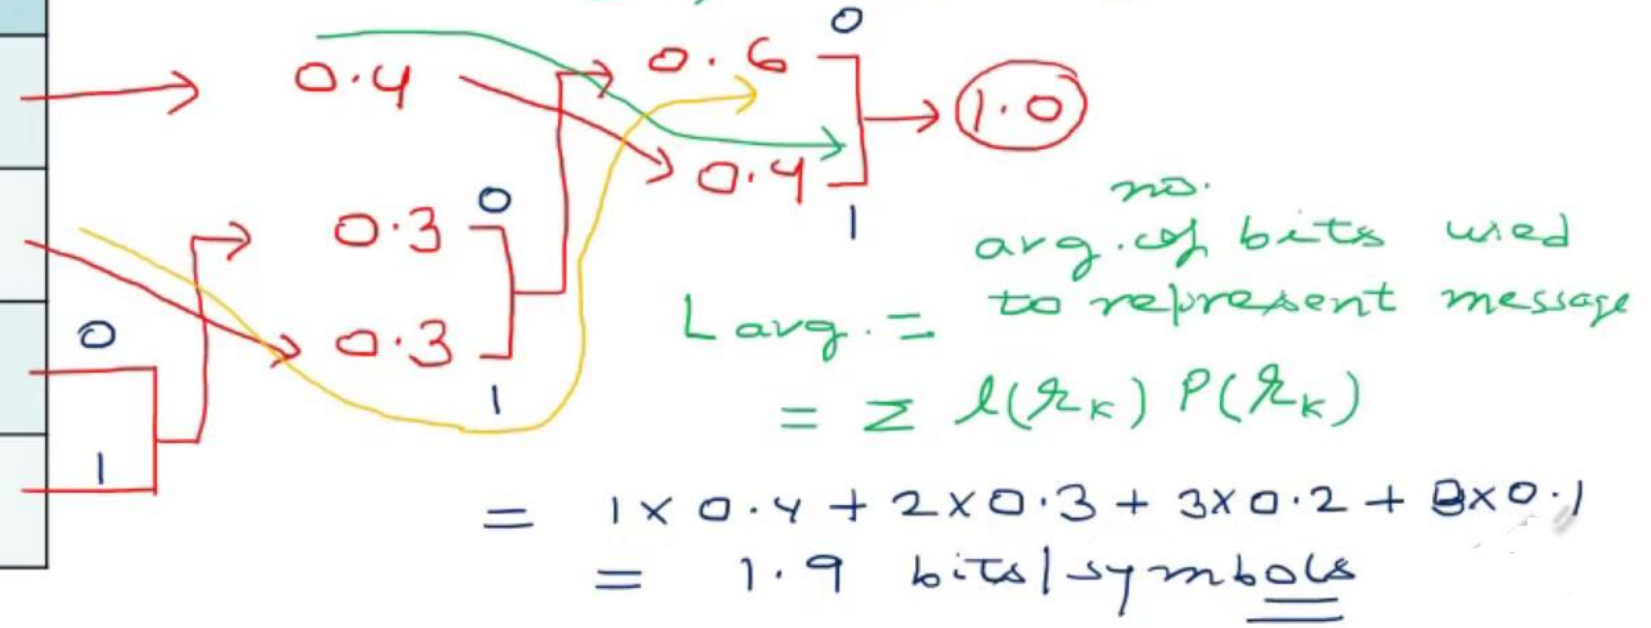 0
0.4 0.6
1.0
0.4
1
0
0.3
0.3
1
0
1
no.
avg. of bits used
L avg. = to represent message
= Σ l(r_k) P(r_k)
= 1 x 0.4 + 2 x 0.3 + 3 x 0.2 + 3 x 0.1
= 1.9 bits/symbols